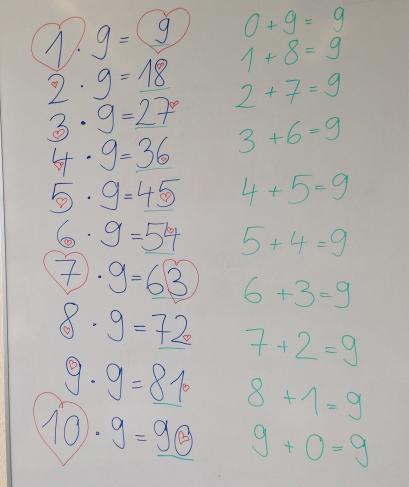 1 · 9 = 9
2 · 9 = 18
3 · 9 = 27
4 · 9 = 36
5 · 9 = 45
6 · 9 = 54
7 · 9 = 63
8 · 9 = 72
9 · 9 = 81
10 · 9 = 90
0 + 9 = 9
1 + 8 = 9
2 + 7 = 9
3 + 6 = 9
4 + 5 = 9
5 + 4 = 9
6 + 3 = 9
7 + 2 = 9
8 + 1 = 9
9 + 0 = 9